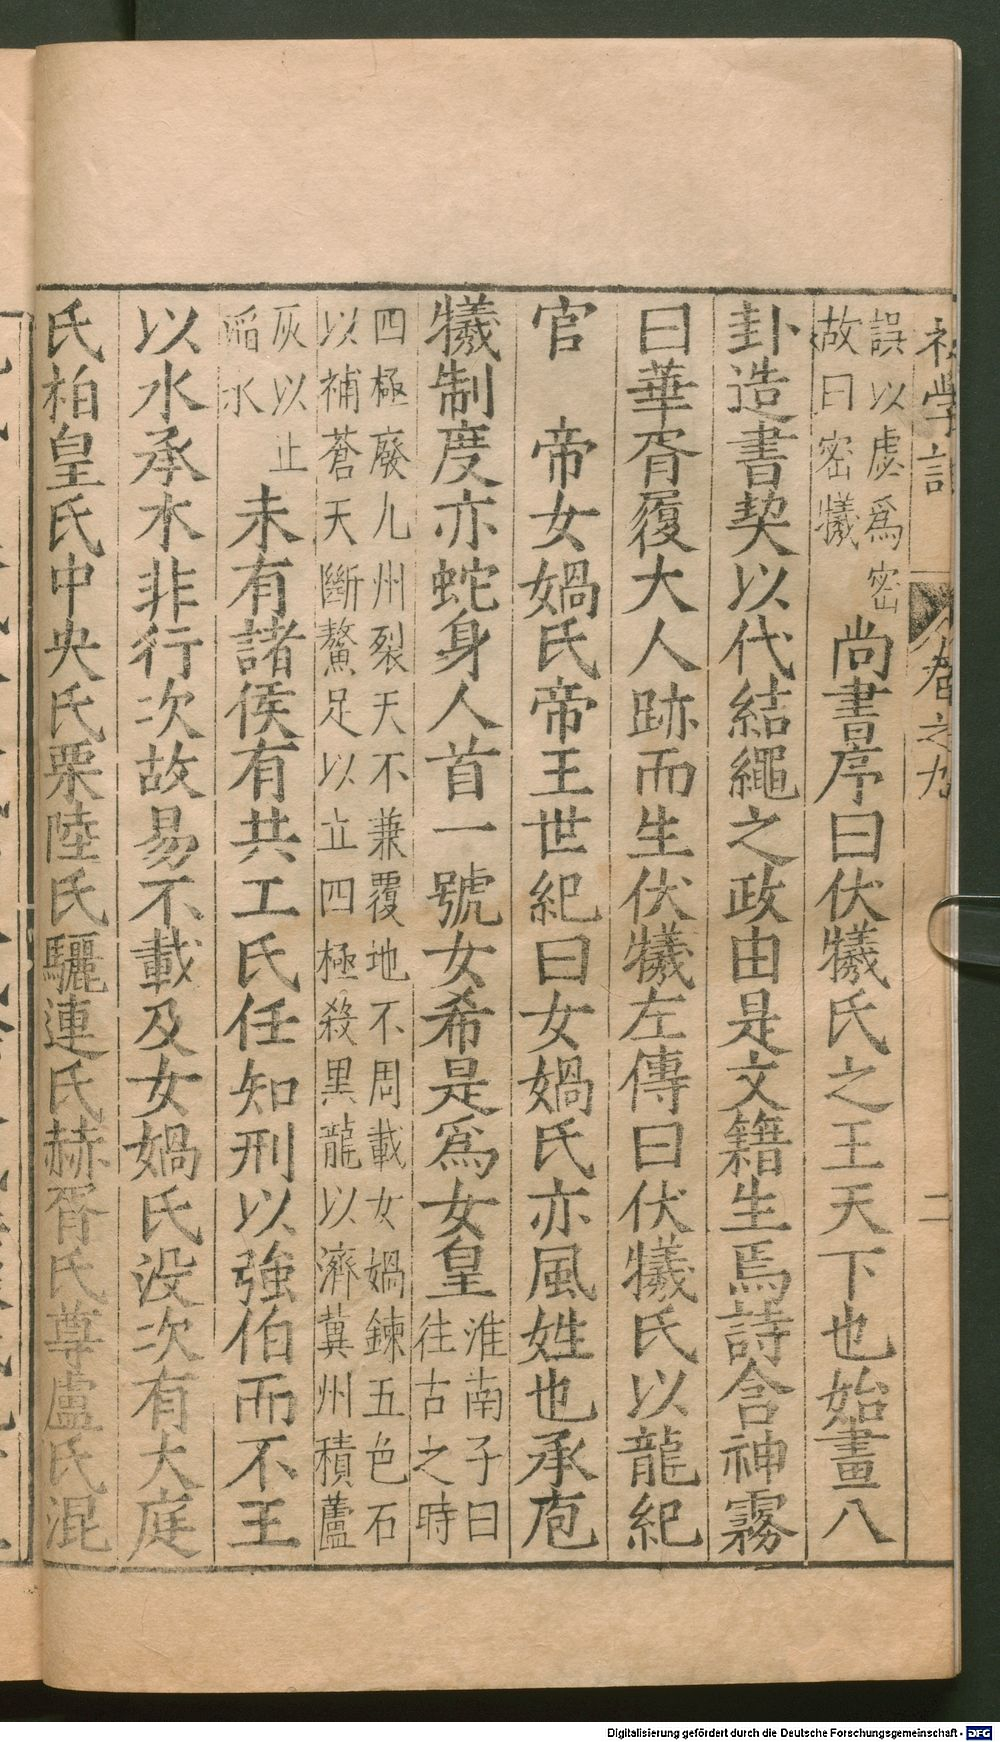 誤以虙爲密
故曰密犧
尚書序曰伏犧氏之王天下也始畫八
卦造書契以代結繩之政由是文籍生焉詩含神霧
曰華胥履大人跡而生伏犧左傳曰伏犧氏以龍紀
官　帝女媧氏帝王世紀曰女媧氏亦風姓也承庖
犧制度亦蛇身人首一號女希是爲女皇
淮南子曰
往古之時
四極廢九州裂天不兼覆地不周載女媧鍊五色石
以補蒼天斷鰲足以立四極殺黑龍以濟冀州積蘆
灰以止
滔水
未有諸侯有共工氏任知刑以強伯而不王
以水承木非行次故易不載及女媧氏没次有大庭
氏柏皇氏中央氏栗陸氏驪連氏赫胥氏尊盧氏混
學
之九
二
Digitalisierung gefördert durch die Deutsche Forschungsgemeinschaft - DFG